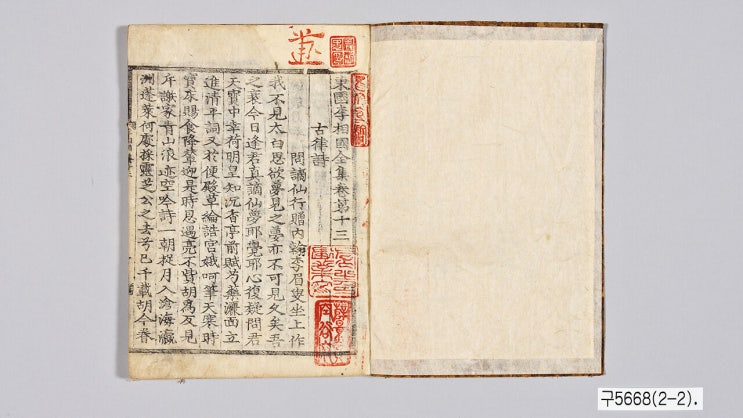 東國李相國全集卷第十三
古律詩
問謫仙行贈內翰李眉叟坐上作
我不見太白思欲夢見之夢亦不可見久矣吾
之衰今日逢君真謫仙夢耶覺耶心復疑問君
天寶中幸荷明皇知沉香亭前賦芍藥灑面立
進清平詞又於便殿草綸誥宮娥呵筆天寒時
寶床賜食降輦迎是時恩遇亮不貲胡爲反見
斥謝家青山浪迹空吟詩一朝捉月入滄海瀛
洲蓬萊何處採靈芝公之去兮已千載胡今
구5668(2-2).